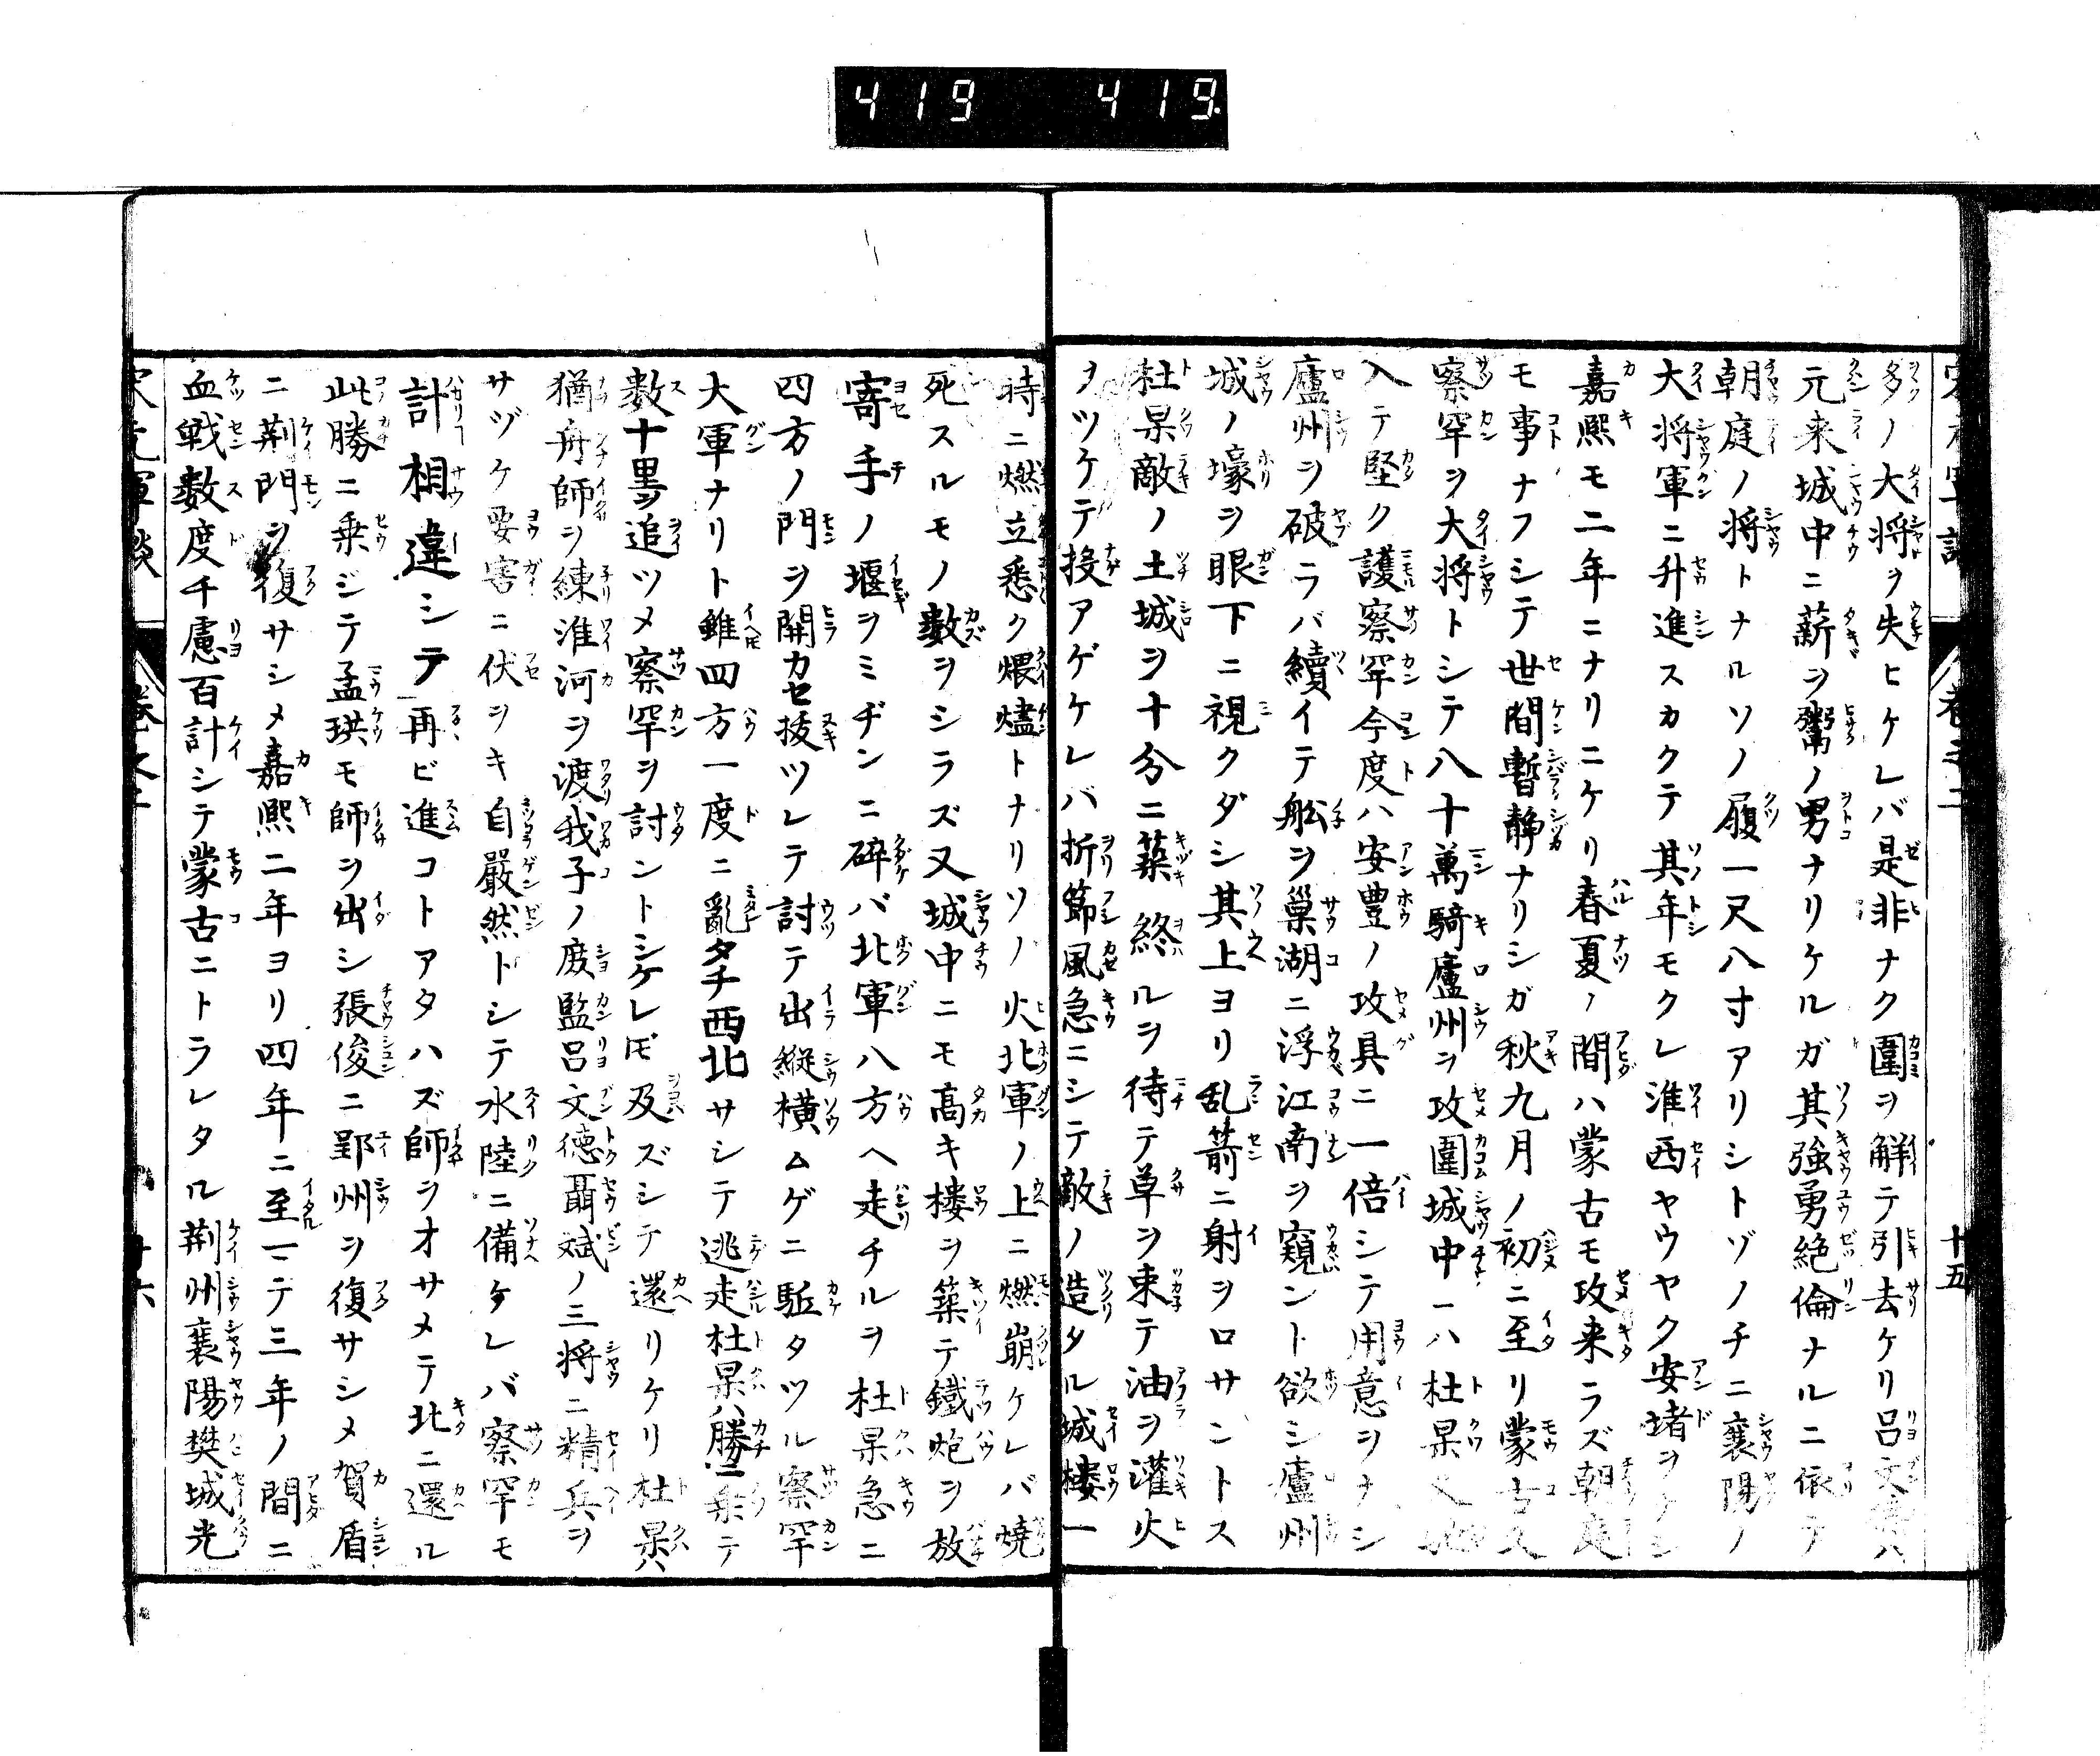 419 419.
十五
多ノ大将ヲ失ヒケレバ是非ナク圍ヲ解テ引去ケリ呂文ハ
元来城中ニ薪ヲ鬻ノ男ナリケルガ其強勇絶倫ナルニ依テ
朝庭ノ将トナルソノ履一尺八寸アリシトゾノチニ襄陽ノ
大将軍ニ升進スカクテ其年モクレ淮西ヤウヤク安堵ヲナシ
嘉熙モ二年ニナリニケリ春夏ノ間ハ蒙古モ攻来ラズ朝庭
モ事ナフシテ世間暫静ナリシガ秋九月ノ初ニ至リ蒙古又
察罕ヲ大将トシテ八十萬騎廬州ヲ攻圍城中ニハ杜杲
入テ堅ク護察罕今度ハ安豊ノ攻具ニ一倍シテ用意ヲナシ
廬州ヲ破ラバ續イテ舩ヲ巢湖ニ浮江南ヲ窺ント欲シ廬州
城ノ壕ヲ眼下ニ視クダシ其上ヨリ乱箭ニ射ヲロサントス
杜杲敵ノ土城ヲ十分ニ築終ルヲ待テ草ヲ束テ油ヲ灌火
ヲツケテ投アゲケレバ折節風急ニシテ敵ノ造タル城楼一
時ニ燃立悉ク煨燼トナリソノ火北軍ノ上ニ燃崩ケレバ焼
死スルモノ数ヲシラズ又城中ニモ高キ楼ヲ築テ鐵炮ヲ放
寄手ノ堰ヲミヂンニ砕バ北軍八方ヘ走チルヲ杜杲急ニ
四方ノ門ヲ開カセ抜ツレテ討テ出縦横ムゲニ駈タツル察罕
大軍ナリト雖四方一度ニ亂タチ西北サシテ逃走杜杲ハ勝ニ乗テ
数十里ヲ追ツメ察罕ヲ討ントシケレ𪜈及ズシテ還リケリ杜杲ハ
猶舟師ヲ練淮河ヲ渡我子ノ庻監呂文徳聶斌ノ三将ニ精兵ヲ
サヅケ要害ニ伏ヲキ自嚴然トシテ水陸ニ備ケレバ察罕モ
計相違シテ再ビ進コトアタハズ師ヲオサメテ北ニ還ル
此勝ニ乗ジテ孟珙モ師ヲ出シ張俊ニ郢州ヲ復サシメ賀盾
ニ荆門ヲ復サシメ嘉熙二年ヨリ四年ニ至マテ三年ノ間ニ
血戦数度千慮百計シテ蒙古ニトラレタル荆州襄陽樊城光
十六